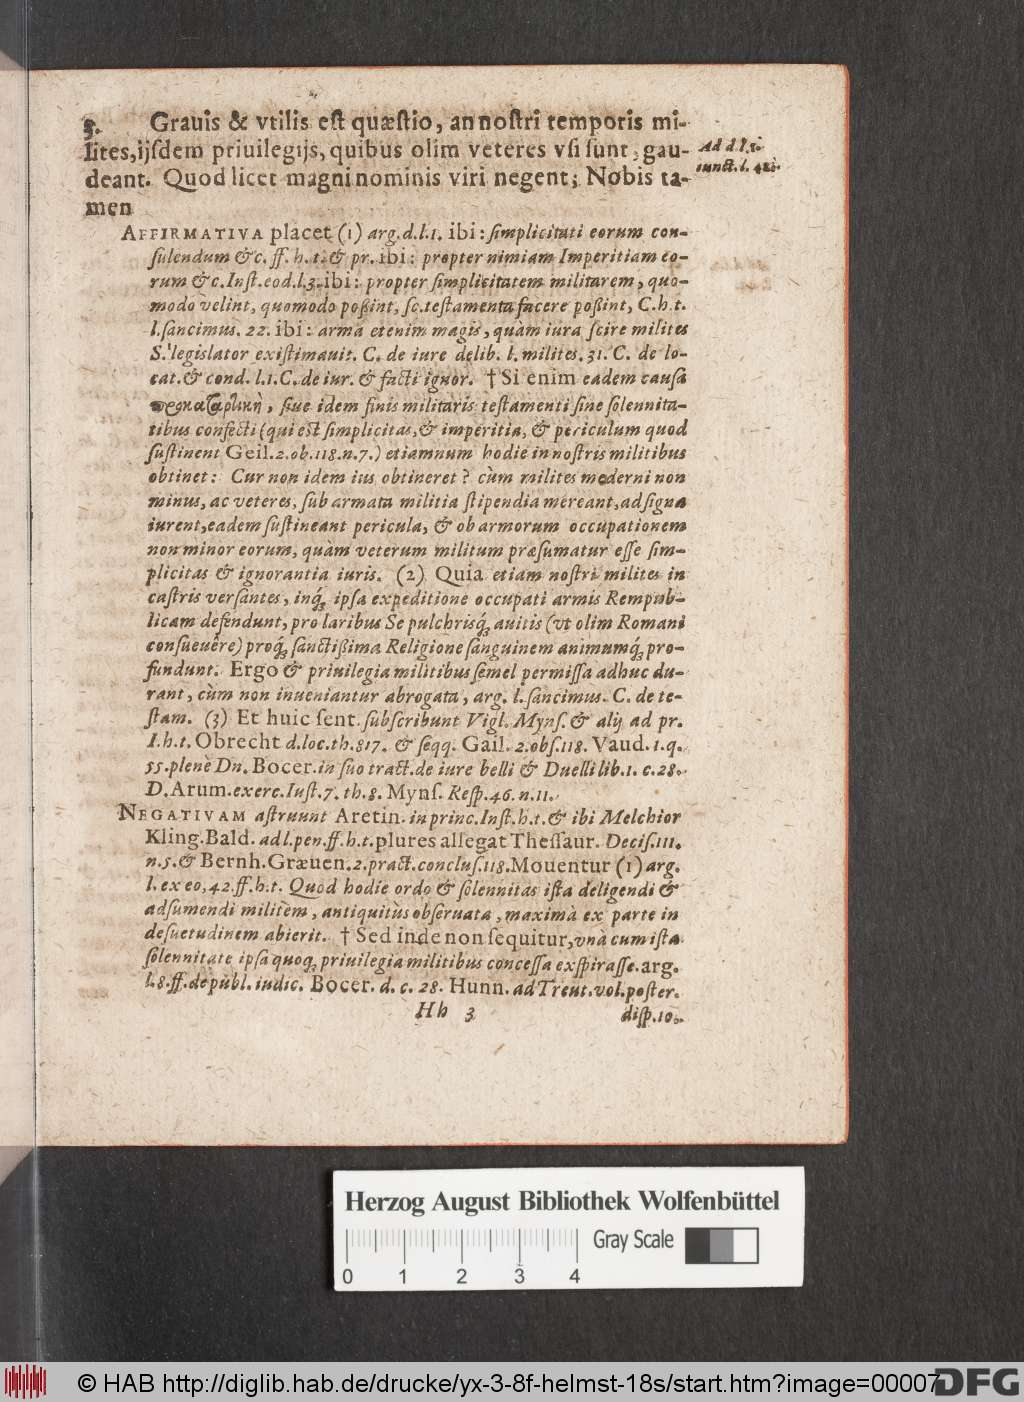 5. Grauis & vtilis est quæstio, an nostri temporis mi-
lites, ijsdem priuilegijs, quibus olim veteres vsi sunt, gau-
deant. Quod licet magni nominis viri negent; Nobis ta-
men
Ad d.l.1.
iunct. l. 42.
AFFIRMATIVA placet (1) arg. d.l.1. ibi: simplicitati eorum con-
sulendum &c. ff. h. t. & pr. ibi: propter nimiam Imperitiam eo-
rum &c. Inst. eod. l.3. ibi: propter simplicitatem militarem, quo-
modo velint, quomodo poßint, sc. testamenta facere poßint, C. h. t.
l. sancimus. 22. ibi: arma etenim magis, quàm iura scire milites
S. legislator existimauit. C. de iure delib. l. milites. 31. C. de lo-
cat. & cond. l.1. C. de iur. & facti ignor. † Si enim eadem causa
προκαταρτικὴ, siue idem finis militaris testamenti sine solennita-
tibus confecti (qui est simplicitas, & imperitia, & periculum quod
sustinent Geil. 2. ob. 118. n. 7.) etiamnum hodie in nostris militibus
obtinet: Cur non idem ius obtineret? cùm milites moderni non
minus, ac veteres, sub armata militia stipendia mereant, ad signa
iurent, eadem sustineant pericula, & ob armorum occupationem
non minor eorum, quàm veterum militum præsumatur esse sim-
plicitas & ignorantia iuris. (2) Quia etiam nostri milites in
castris versantes, inq́; ipsa expeditione occupati armis Rempub-
licam defendunt, pro laribus Se pulchrisq́; auitis (vt olim Romani
consueuêre) proq́; sanctißima Religione sanguinem animumq́; pro-
fundunt. Ergo & priuilegia militibus semel permissa adhuc du-
rant, cùm non inueniantur abrogata, arg. l. sancimus. C. de te-
stam. (3) Et huic sent. subscribunt Vigl. Myns. & alij ad pr.
I. h. t. Obrecht d. loc. th. 817. & seqq. Gail. 2. obs. 118. Vaud. 1. q.
55. plenè Dn. Bocer. in suo tract. de iure belli & Duelli lib. 1. c. 28.
D. Arum. exerc. Iust. 7. th. 8. Myns. Resp. 46. n. 11.
NEGATIVAM astruunt Aretin. in princ. Inst. h. t. & ibi Melchior
Kling. Bald. ad l. pen. ff. h. t. plures allegat Thessaur. Decis. 111.
n. 5. & Bernh. Græuen. 2. pract. conclus. 118. Mouentur (1) arg.
l. ex eo, 42. ff. h. t. Quòd hodie ordo & solennitas ista deligendi &
adsumendi militem, antiquitùs obseruata, maximà ex parte in
desuetudinem abierit. † Sed inde non sequitur, vnà cum ista
solennitate ipsa quoq; priuilegia militibus concessa exspirasse. arg.
l. 8. ff. de publ. iudic. Bocer. d. c. 28. Hunn. ad Treut. vol. poster.
Hh 3 disp. 10.
Herzog August Bibliothek Wolfenbüttel
Gray Scale
0 1 2 3 4
© HAB http://diglib.hab.de/drucke/yx-3-8f-helmst-18s/start.htm?image=00007
DFG